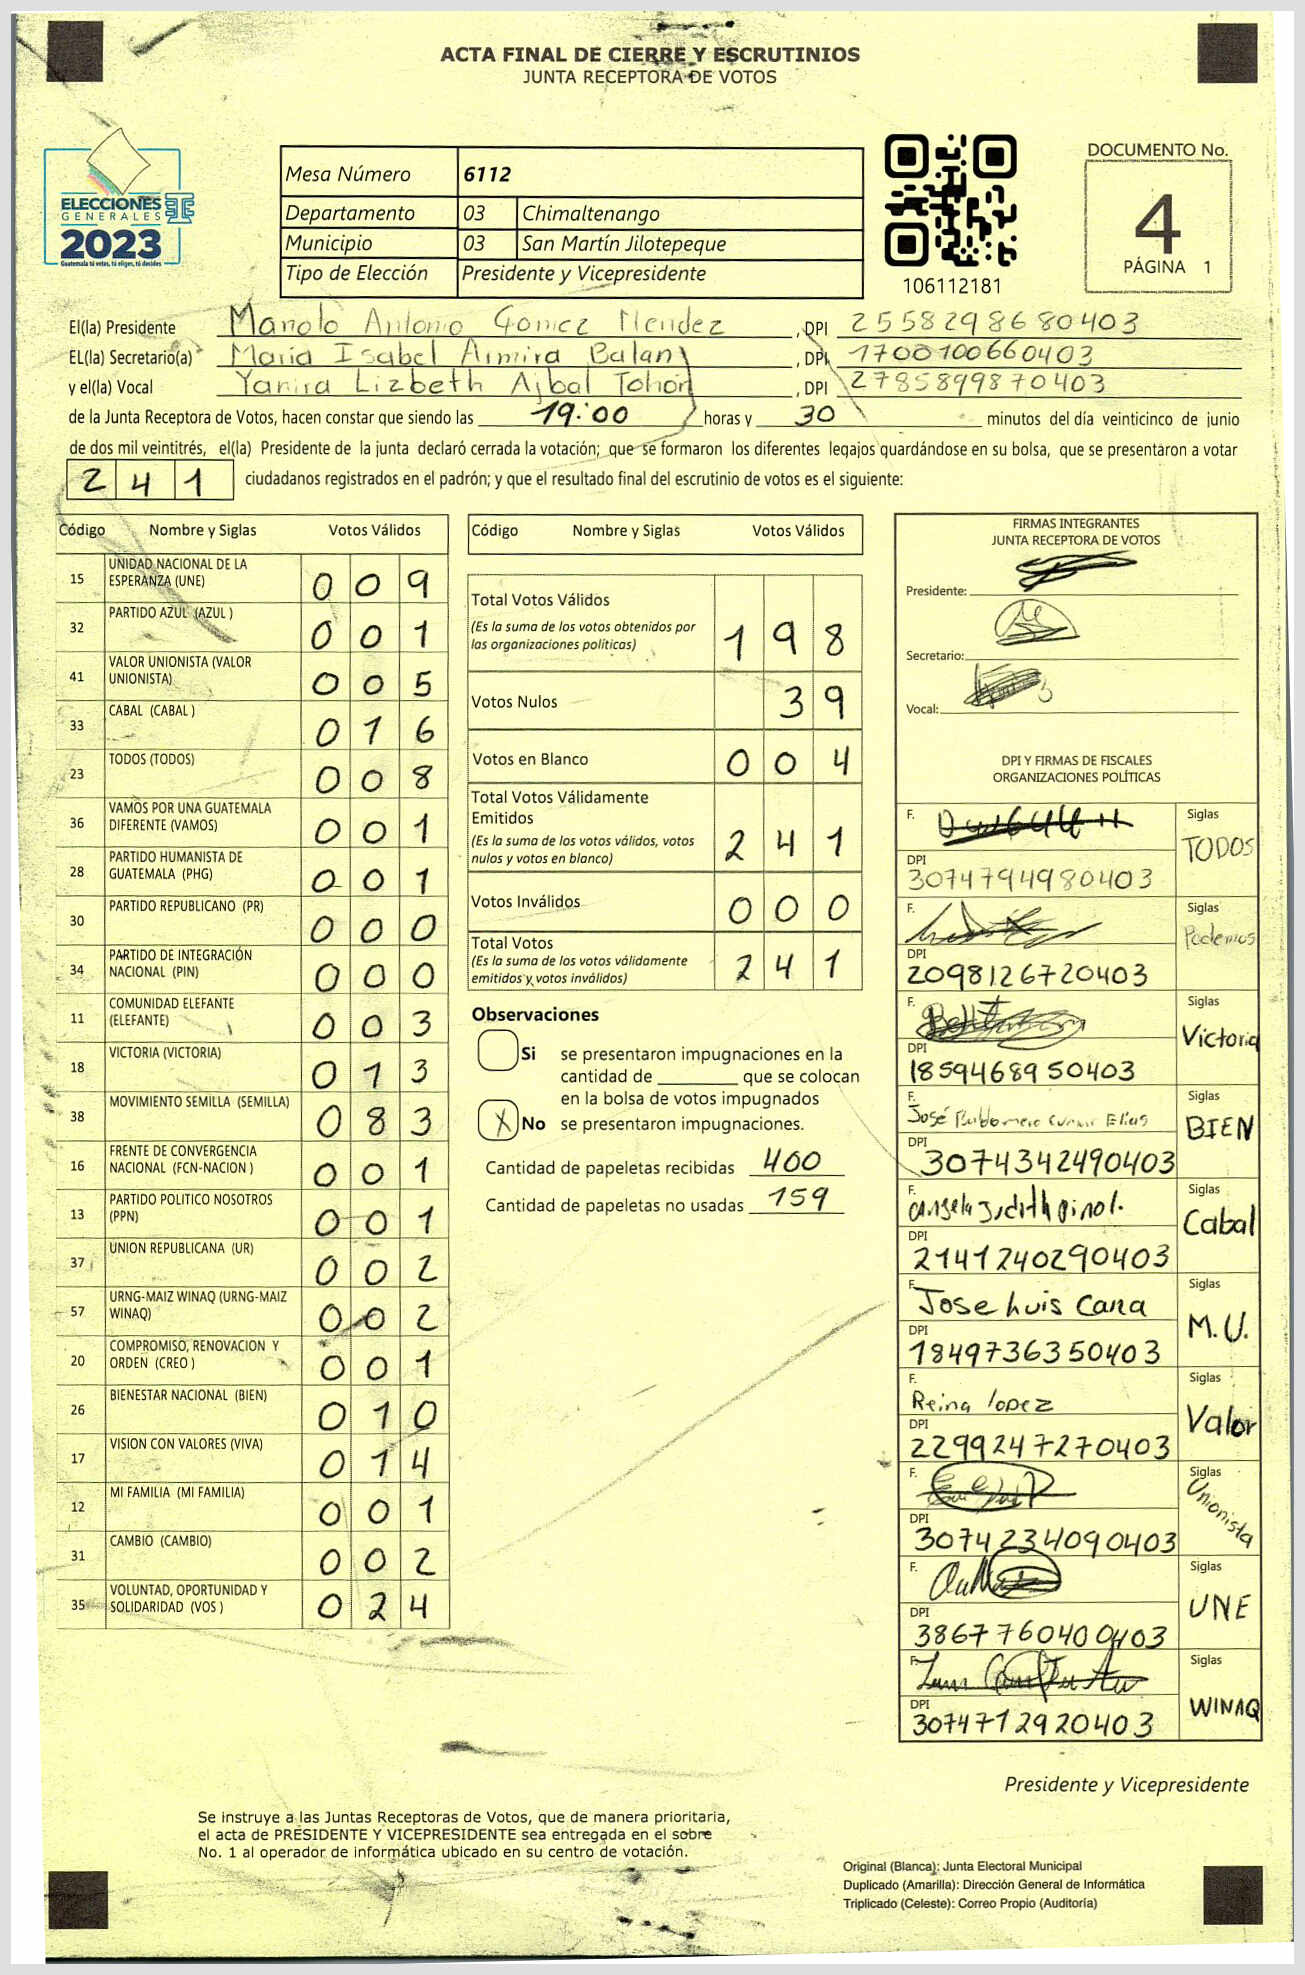 ACTA FINAL DE CIERRE Y ESCRUTINIOS
JUNTA RECEPTORA DE VOTOS
ELECCIONES
GENERALES
2023
Guatemala tú votas, tú eliges, tú decides
Mesa Número 6112
Departamento 03 Chimaltenango
Municipio 03 San Martín Jilotepeque
Tipo de Elección Presidente y Vicepresidente
106112181
DOCUMENTO No.
4
PÁGINA 1
El(la) Presidente Manolo Antonio Gomez Mendez , DPI 2558298680403
EL(la) Secretario(a) Maria Isabel Armira Balan , DPI 1700100660403
y el(la) Vocal Yanira Lizbeth Ajbal Tohón , DPI 2785899870403
de la Junta Receptora de Votos, hacen constar que siendo las 19:00 horas y 30 minutos del día veinticinco de junio
de dos mil veintitrés, el(la) Presidente de la junta declaró cerrada la votación; que se formaron los diferentes legajos guardándose en su bolsa, que se presentaron a votar
241 ciudadanos registrados en el padrón; y que el resultado final del escrutinio de votos es el siguiente:
Código Nombre y Siglas Votos Válidos
15 UNIDAD NACIONAL DE LA ESPERANZA (UNE) 009
32 PARTIDO AZUL (AZUL ) 001
41 VALOR UNIONISTA (VALOR UNIONISTA) 005
33 CABAL (CABAL ) 016
23 TODOS (TODOS) 008
36 VAMOS POR UNA GUATEMALA DIFERENTE (VAMOS) 001
28 PARTIDO HUMANISTA DE GUATEMALA (PHG) 001
30 PARTIDO REPUBLICANO (PR) 000
34 PARTIDO DE INTEGRACIÓN NACIONAL (PIN) 000
11 COMUNIDAD ELEFANTE (ELEFANTE) 003
18 VICTORIA (VICTORIA) 013
38 MOVIMIENTO SEMILLA (SEMILLA) 083
16 FRENTE DE CONVERGENCIA NACIONAL (FCN-NACION ) 001
13 PARTIDO POLITICO NOSOTROS (PPN) 001
37 UNION REPUBLICANA (UR) 002
57 URNG-MAIZ WINAQ (URNG-MAIZ WINAQ) 002
20 COMPROMISO, RENOVACION Y ORDEN (CREO ) 001
26 BIENESTAR NACIONAL (BIEN) 010
17 VISION CON VALORES (VIVA) 014
12 MI FAMILIA (MI FAMILIA) 001
31 CAMBIO (CAMBIO) 002
35 VOLUNTAD, OPORTUNIDAD Y SOLIDARIDAD (VOS ) 024
Código Nombre y Siglas Votos Válidos
Total Votos Válidos 198
(Es la suma de los votos obtenidos por
las organizaciones politicas)
Votos Nulos 39
Votos en Blanco 004
Total Votos Válidamente
Emitidos 241
(Es la suma de los votos válidos, votos
nulos y votos en blanco)
Votos Inválidos 000
Total Votos 241
(Es la suma de los votos válidamente
emitidos y votos inválidos)
Observaciones
Si se presentaron impugnaciones en la
cantidad de ________ que se colocan
en la bolsa de votos impugnados
X No se presentaron impugnaciones.
Cantidad de papeletas recibidas 400
Cantidad de papeletas no usadas 159
FIRMAS INTEGRANTES
JUNTA RECEPTORA DE VOTOS
Presidente:
Secretario:
Vocal:
DPI Y FIRMAS DE FISCALES
ORGANIZACIONES POLÍTICAS
F. Siglas TODOS
DPI 3074794980403
F. Siglas Podemos
DPI 2098126720403
F. Siglas Victoria
DPI 1859468950403
F. José Elias Siglas BIEN
DPI 3074342490403
F. Angela Judith Pinol. Siglas Cabal
DPI 2141240290403
F. Jose Luis Cana Siglas M.U.
DPI 1849736350403
F. Reina lopez Siglas Valor
DPI 2299247270403
F. Siglas Unionista
DPI 3074234090403
F. Siglas UNE
DPI 3867760400403
F. Siglas WINAQ
DPI 3074712920403
Presidente y Vicepresidente
Se instruye a las Juntas Receptoras de Votos, que de manera prioritaria,
el acta de PRESIDENTE Y VICEPRESIDENTE sea entregada en el sobre
No. 1 al operador de informática ubicado en su centro de votación.
Original (Blanca): Junta Electoral Municipal
Duplicado (Amarilla): Dirección General de Informática
Triplicado (Celeste): Correo Propio (Auditoría)